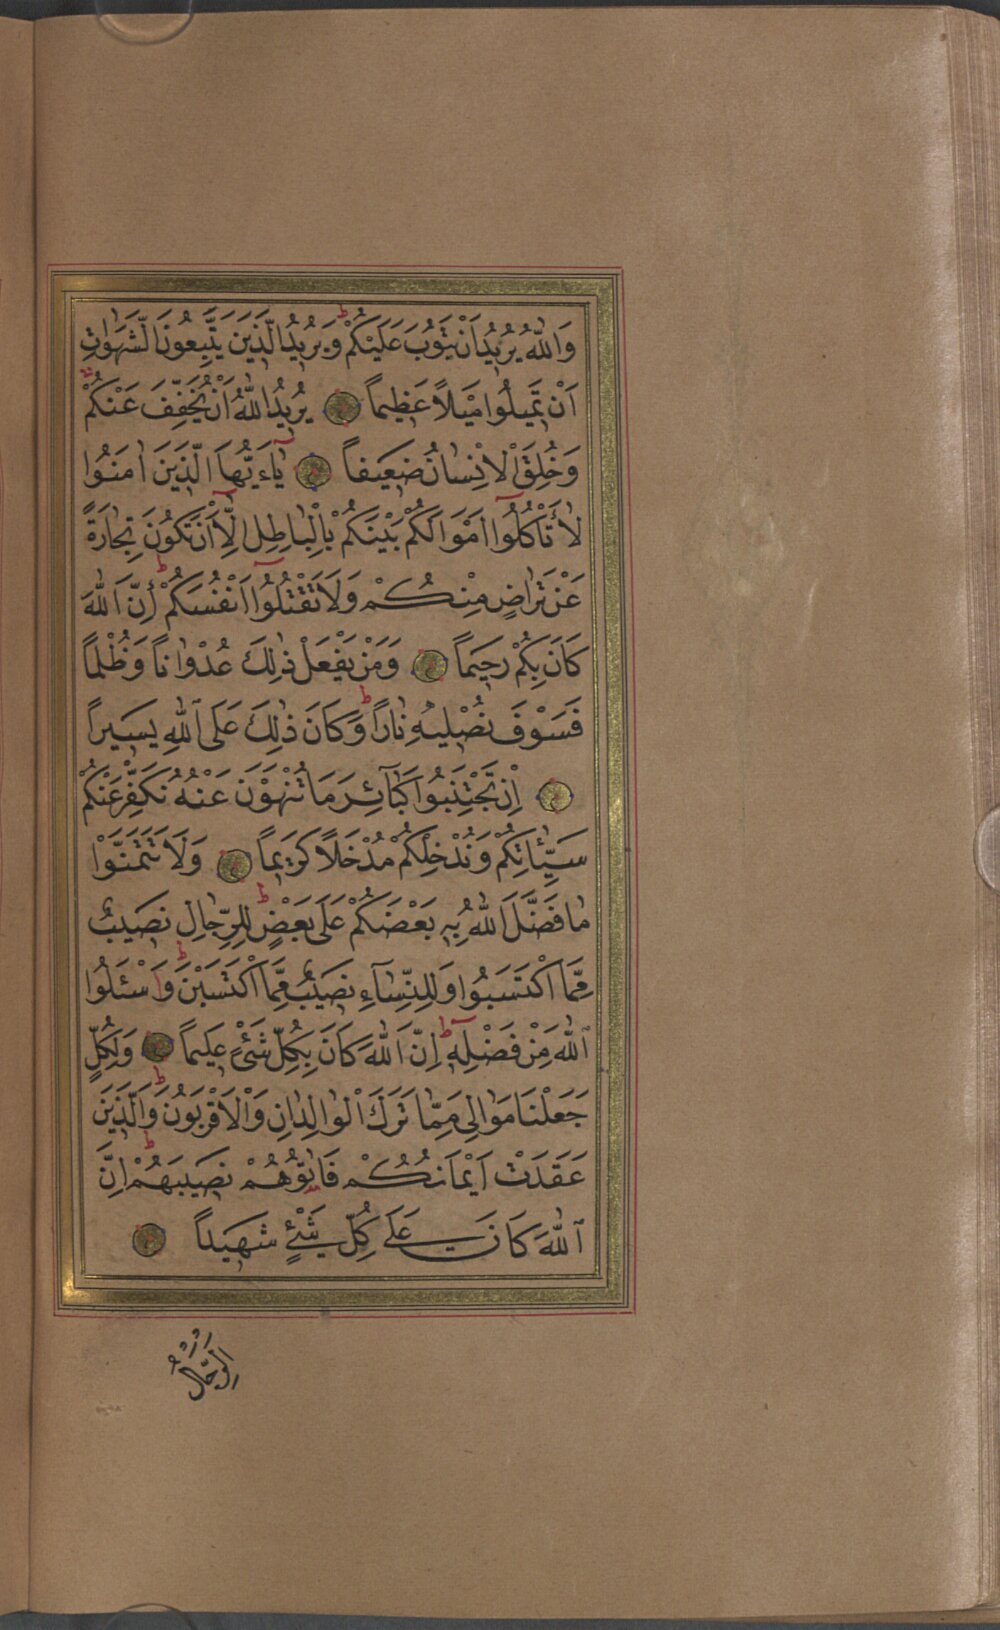 وَاللّٰهُ يُرِيدُ اَنْ يَتُوبَ عَلَيْكُمْ ط وَيُرِيدُ الَّذِينَ يَتَّبِعُونَ الشَّهَوَاتِ
اَنْ تَمِيلُوا مَيْلاً عَظِيماً يُرِيدُ اللّٰهُ اَنْ يُخَفِّفَ عَنْكُمْ
وَخُلِقَ الْاِنْسَانُ ضَعِيفاً يَٓاءَيُّهَا الَّذِينَ اٰمَنُوا
لَا تَأْكُلُٓوا اَمْوَالَكُمْ بَيْنَكُمْ بِالْبَاطِلِ اِلَّٓا اَنْ تَكُونَ تِجَارَةً
عَنْ تَرَاضٍ مِنْكُمْ وَلَا تَقْتُلُٓوا اَنْفُسَكُمْ ط اِنَّ اللّٰهَ
كَانَ بِكُمْ رَحِيماً وَمَنْ يَفْعَلْ ذٰلِكَ عُدْوَاناً وَظُلْماً
فَسَوْفَ نُصْلِيهِ نَاراً ط وَكَانَ ذٰلِكَ عَلَى اللّٰهِ يَسِيراً
اِنْ تَجْتَنِبُوا كَبَٓائِرَ مَا تُنْهَوْنَ عَنْهُ نُكَفِّرْ عَنْكُمْ
سَيِّئَاتِكُمْ وَنُدْخِلْكُمْ مُدْخَلًا كَرِيماً وَلَا تَتَمَنَّوْا
مَا فَضَّلَ اللّٰهُ بِهِ بَعْضَكُمْ عَلَى بَعْضٍ ط لِلرِّجَالِ نَصِيبٌ
مِمَّا اكْتَسَبُوا ط وَلِلنِّسَٓاءِ نَصِيبٌ مِمَّا اكْتَسَبْنَ ط وَاسْئَلُوا
اللّٰهَ مِنْ فَضْلِهِٓ ط اِنَّ اللّٰهَ كَانَ بِكُلِّ شَيْءٍ عَلِيماً وَلِكُلٍّ
جَعَلْنَا مَوَالِيَ مِمَّا تَرَكَ الْوَالِدَانِ وَالْاَقْرَبُونَ ط وَالَّذِينَ
عَقَدَتْ اَيْمَانُكُمْ فَاٰتُوهُمْ نَصِيبَهُمْ ط اِنَّ
اللّٰهَ كَانَ عَلَى كُلِّ شَيْءٍ شَهِيداً
اَلرِّجَالُ